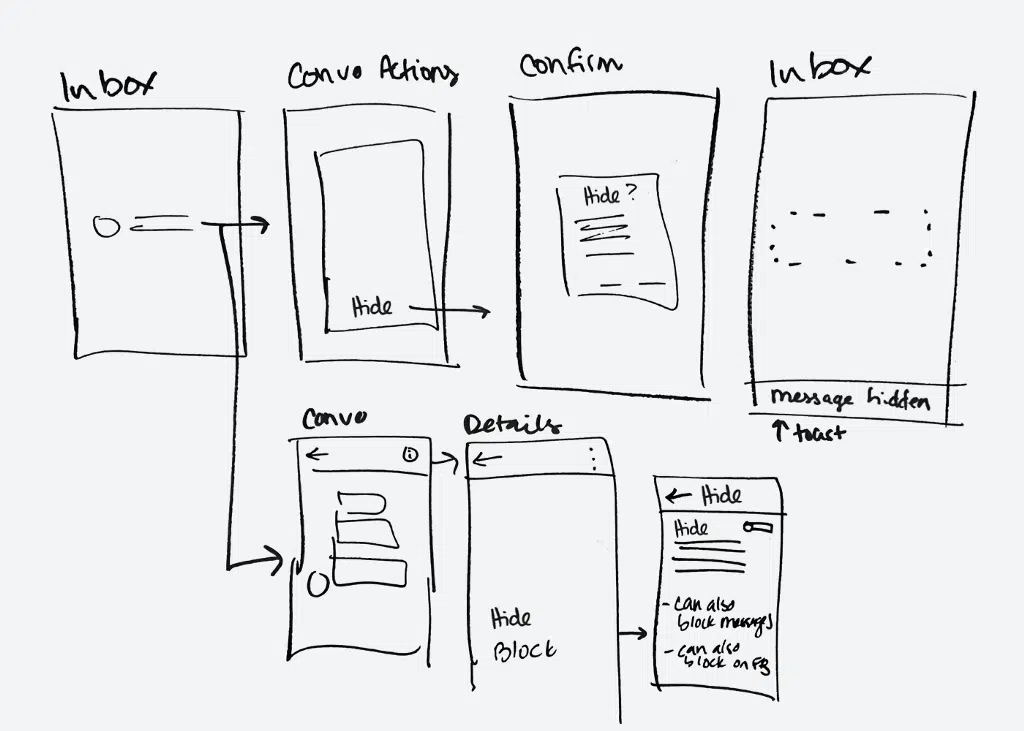 Inbox
Convo Actions
Confirm
Inbox
Hide?
Hide
message hidden
↑ toast
Convo
Details
Hide
Block
← Hide
Hide
- can also
block messages
- can also
block on FB